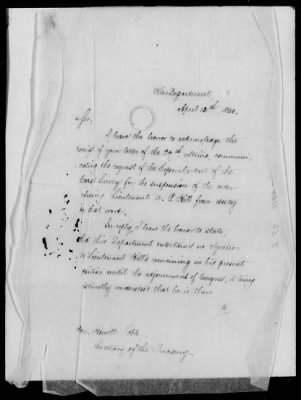 War Department
April 12th, 1860.
Sir:
I have the honor to acknowledge the
receipt of your letter of the 29th ultimo, communi-
cating the request of the Superintendent of the
Coast Survey for the suspension of the order
relieving Lieutenant A. P. Hill from duty
in that work.
In reply, I have the honor to state
that this Department entertains no objection
to Lieutenant Hill's remaining in his present
position until the adjournment of Congress, it being
distinctly understood that he is then
Hon. Howell Cobb
Secretary of the Treasury